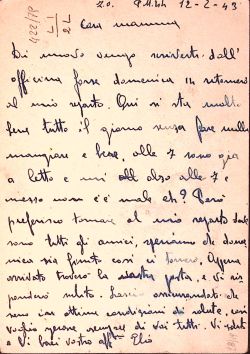 20. P.M. 12-2-43
Cara mamma
Di nuovo vengo scriverti dall'
officina forse domenica 14 ritornerò
al mio reparto. Qui si sta molto
bene tutto il giorno senza fare nulla
mangiare e bere, alle 7 sono già
a letto e mi alzo alle 7 e
mezzo non c'è male eh? Però
preferisco tornare al mio reparto dove
sono tutti gli amici, speriamo che dome
nica sia finito così ci tornerò. Appena
arrivato troverò la vostra posta, e vi ris
ponderò subito. Lascio assicurandoti che
sono in ottime condizioni di salute, così
voglio sperare sempre di voi tutti. Vi saluto
e Vi baci vostro aff.mo Elio